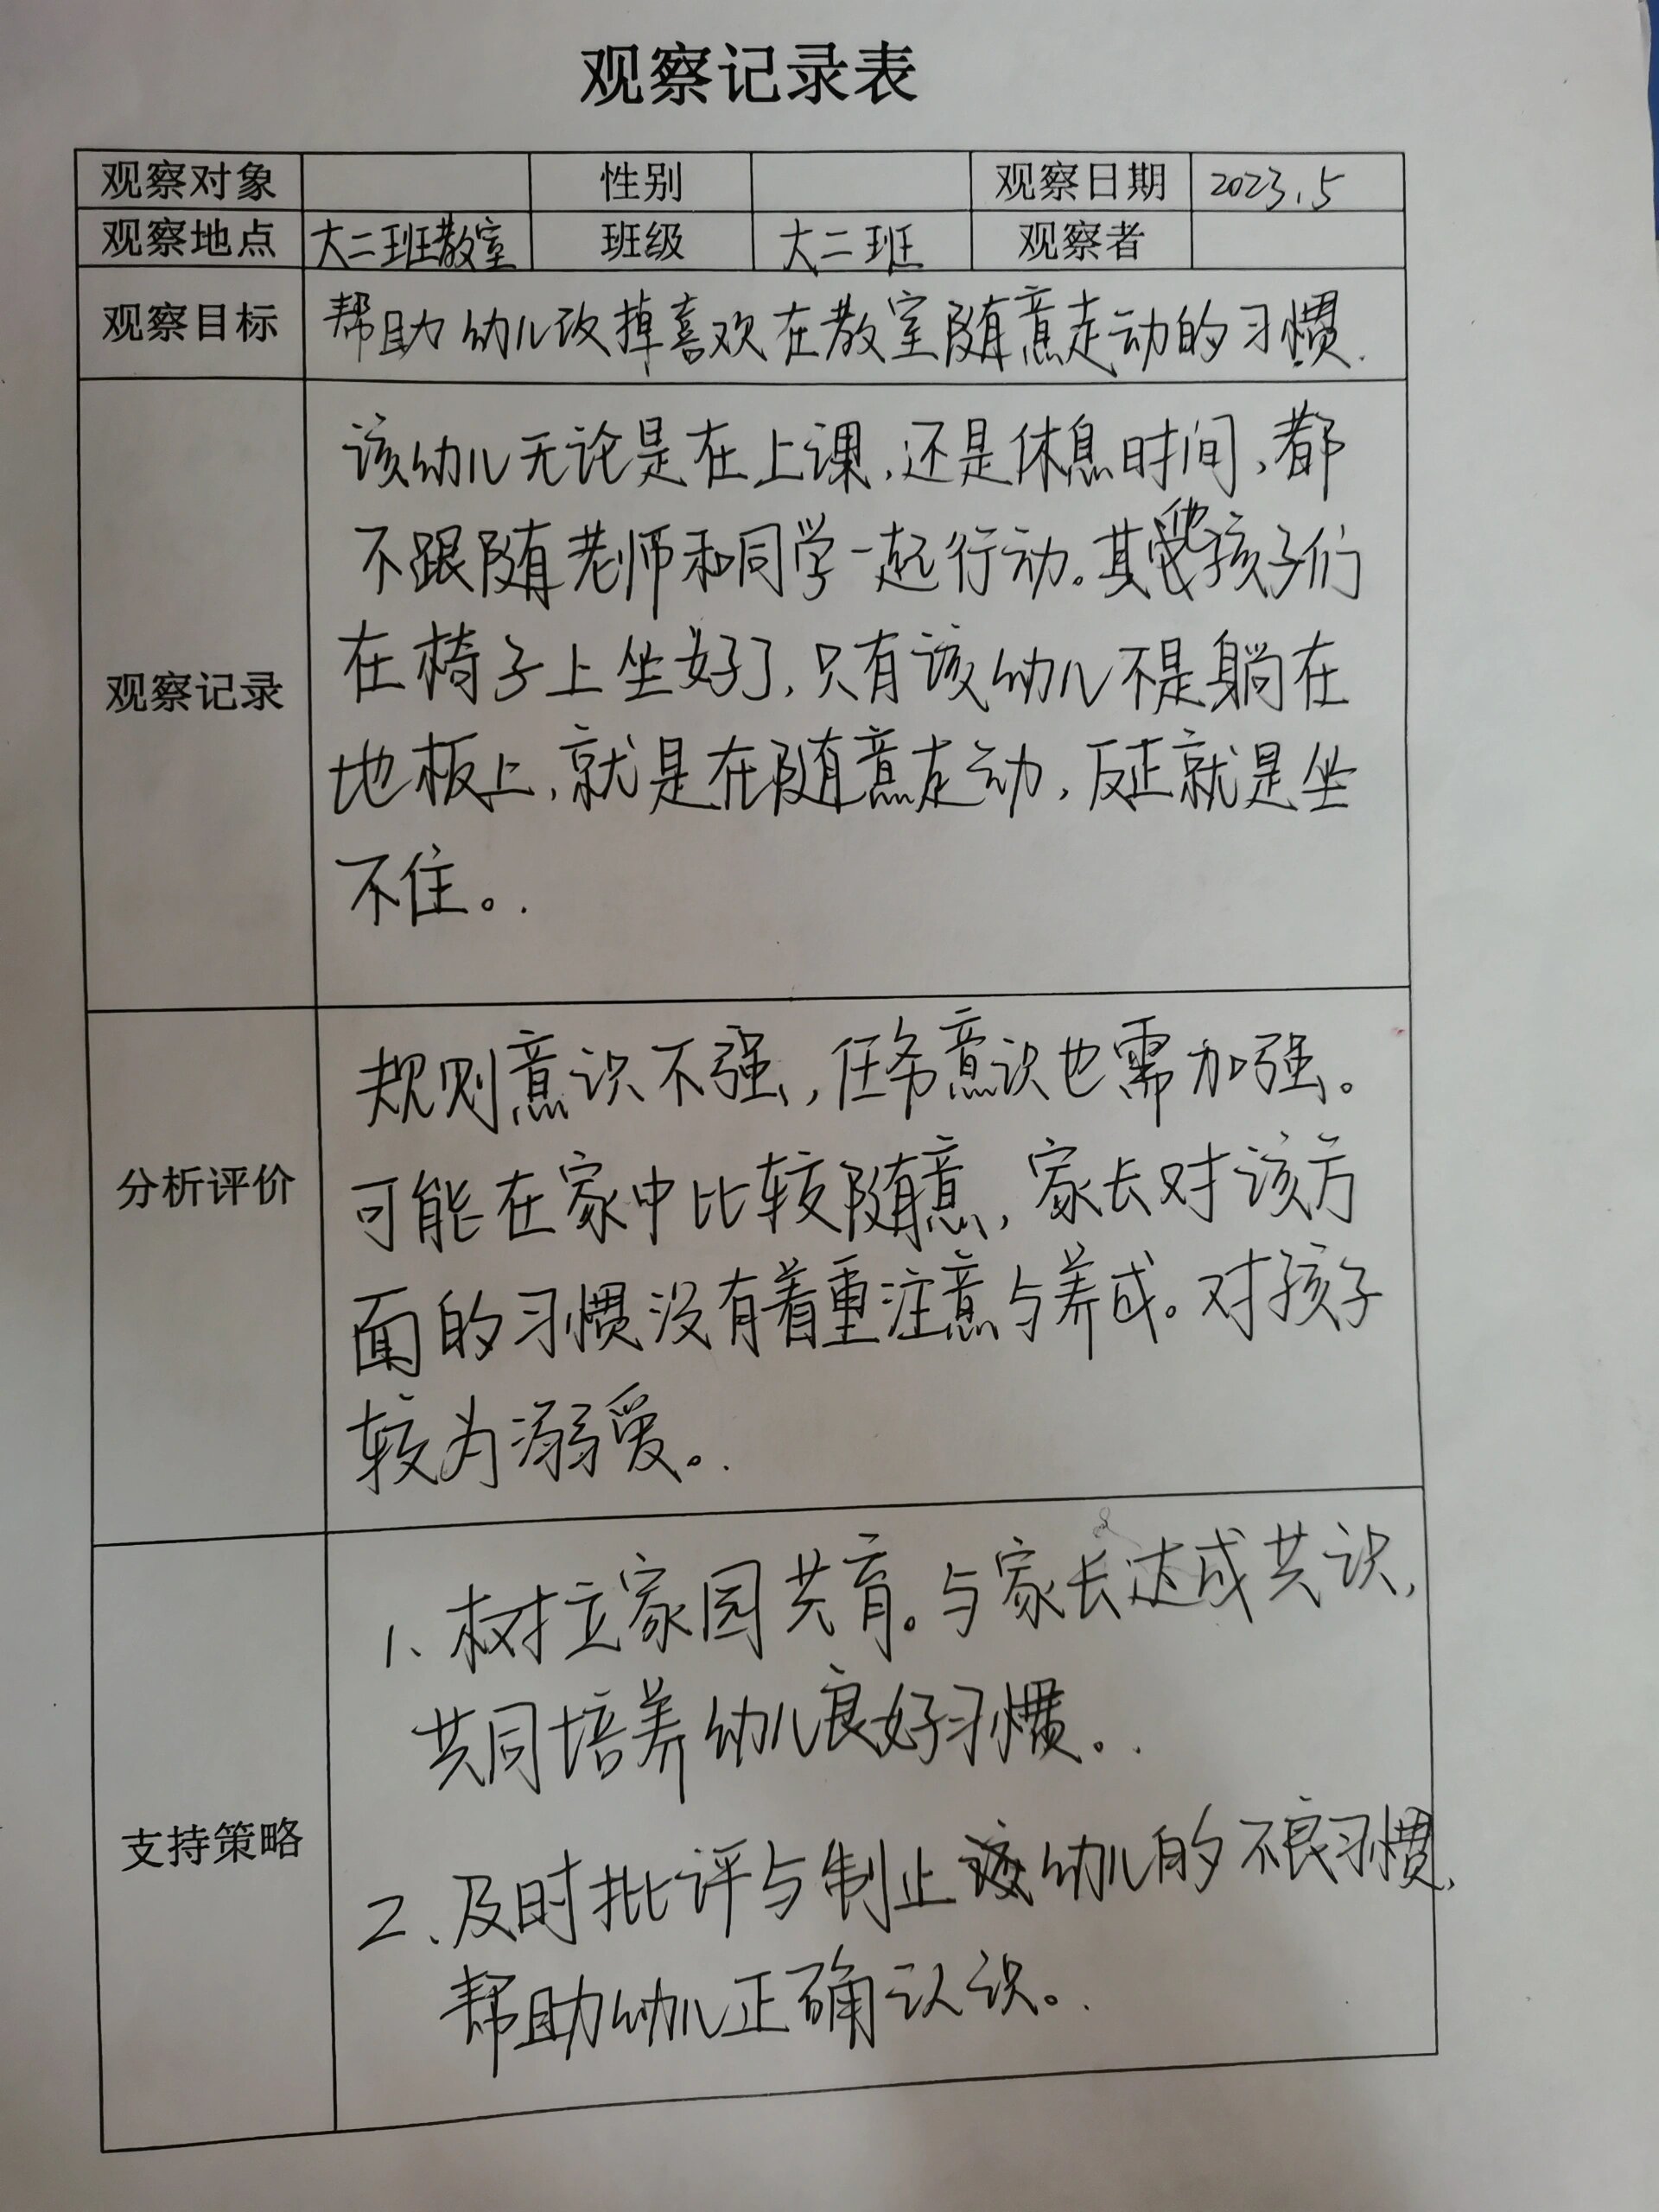 观察记录表
观察对象 性别 观察日期 2023.5
观察地点 大二班教室 班级 大二班 观察者
观察目标 帮助幼儿改掉喜欢在教室随意走动的习惯.
观察记录
该幼儿无论是在上课,还是休息时间,都
不跟随老师和同学一起行动。其他孩子们
在椅子上坐好了,只有该幼儿不是躺在
地板上,就是在随意走动,反正就是坐
不住。.
分析评价
规则意识不强,任务意识也需加强。
可能在家中比较随意,家长对该方
面的习惯没有着重注意与养成。对孩子
较为溺爱。.
支持策略
1、树立家园共育。与家长达成共识,
共同培养幼儿良好习惯。.
2、及时批评与制止该幼儿的不良习惯,
帮助幼儿正确认识。.